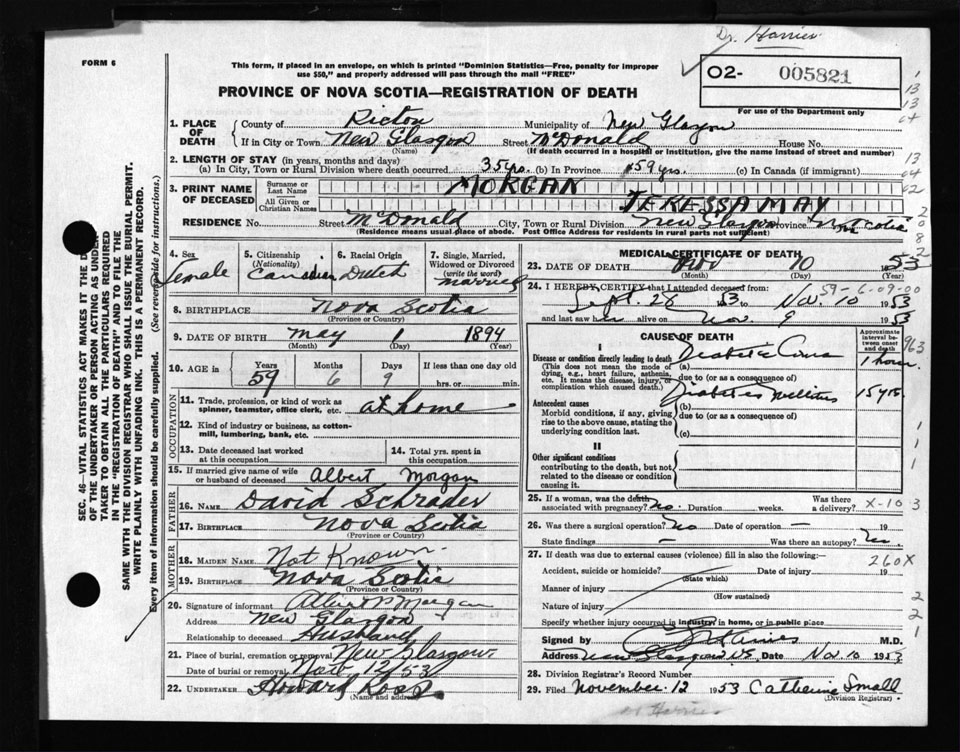 Dr. Harries
FORM 6
This form, if placed in an envelope, on which is printed "Dominion Statistics—Free, penalty for improper
use $50," and properly addressed will pass through the mail "FREE"
O2- 005821
For use of the Department only
PROVINCE OF NOVA SCOTIA—REGISTRATION OF DEATH
1. PLACE OF DEATH
County of Pictou Municipality of New Glasgow
If in City or Town New Glasgow Street McDonald House No.
(Name) (If death occurred in a hospital or institution, give the name instead of street and number)
2. LENGTH OF STAY (in years, months and days)
(a) In City, Town or Rural Division where death occurred 35 yrs. (b) In Province 59 yrs. (c) In Canada (if immigrant)
3. PRINT NAME OF DECEASED
Surname or Last Name MORGAN
All Given or Christian Names TERESSA MAY
RESIDENCE No. Street McDonald City, Town or Rural Division New Glasgow Province Nova Scotia
(Residence means usual place of abode. Post Office Address for residents in rural parts not sufficient)
4. Sex Female
5. Citizenship (Nationality) Canadian
6. Racial Origin Dutch
7. Single, Married, Widowed or Divorced (write the word) Married
8. BIRTHPLACE Nova Scotia
(Province or Country)
9. DATE OF BIRTH May 1 1894
(Month) (Day)
10. AGE in Years 59 Months 6 Days 9 If less than one day old
hrs. or min.
OCCUPATION
11. Trade, profession, or kind of work as spinner, teamster, office clerk, etc. at home
12. Kind of industry or business, as cotton-mill, lumbering, bank, etc.
13. Date deceased last worked at this occupation
14. Total yrs. spent in this occupation
15. If married give name of wife or husband of deceased Albert Morgan
FATHER
16. NAME David Schrader
17. BIRTHPLACE Nova Scotia
(Province or Country)
MOTHER
18. MAIDEN NAME Not Known
19. BIRTHPLACE Nova Scotia
(Province or Country)
20. Signature of informant Albert P Morgan
Address New Glasgow
Relationship to deceased Husband
21. Place of burial, cremation or removal New Glasgow
Date of burial or removal Nov 12/53
22. UNDERTAKER Howard Ross
(Name and address)
MEDICAL CERTIFICATE OF DEATH
23. DATE OF DEATH Nov 10 1953
(Month) (Day)
59-6-09-00
24. I HEREBY CERTIFY that I attended deceased from:
Sept. 28 1953 to Nov 10 1953
and last saw her alive on Nov. 9 1953
CAUSE OF DEATH
Approximate interval between onset and death
I
Disease or condition directly leading to death (a) Diabetic Coma 1 hour
(This does not mean the mode of dying, e.g., heart failure, asthenia, etc. It means the disease, injury, or complication which caused death.)
due to (or as a consequence of)
Antecedent causes
Morbid conditions, if any, giving rise to the above cause, stating the underlying condition last.
(b) Diabetes Mellitus 15 yrs.
due to (or as a consequence of)
(c)
II
Other significant conditions contributing to the death, but not related to the disease or condition causing it.
25. If a woman, was the death associated with pregnancy? no. Duration weeks. Was there a delivery?
X-10 3
26. Was there a surgical operation? no Date of operation — 19
State findings — Was there an autopsy? no.
27. If death was due to external causes (violence) fill in also the following:—
260X
Accident, suicide or homicide? Date of injury 19
(State which)
Manner of injury
(How sustained)
Nature of injury
Specify whether injury occurred in industry, in home, or in public place
Signed by Harries M.D.
Address New Glasgow N.S. Date Nov. 10 1953
28. Division Registrar's Record Number
29. Filed November 12 1953 Catherine Small
(Division Registrar)
SEC. 46- VITAL STATISTICS ACT MAKES IT THE DUTY
OF THE UNDERTAKER OR PERSON ACTING AS UNDER-
TAKER TO OBTAIN ALL THE PARTICULARS REQUIRED
IN THE "REGISTRATION OF DEATH" AND TO FILE THE
SAME WITH THE DIVISION REGISTRAR WHO SHALL ISSUE THE BURIAL PERMIT.
WRITE PLAINLY WITH UNFADING INK. THIS IS A PERMANENT RECORD.
Every item of information should be carefully supplied. (See reverse side for instructions.)